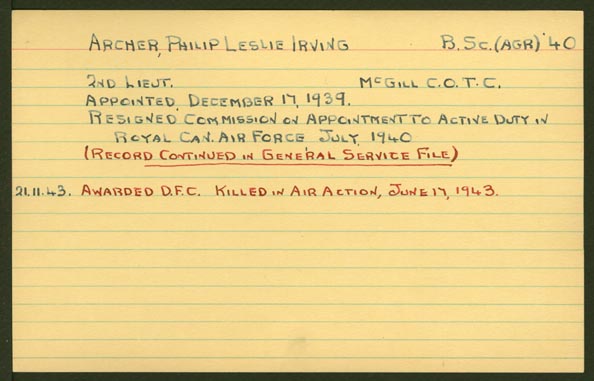 ARCHER, PHILIP LESLIE IRVING B.Sc.(AGR)'40
2ND LIEUT. McGILL C.O.T.C.
APPOINTED, DECEMBER 17, 1939.
RESIGNED COMMISSION ON APPOINTMENT TO ACTIVE DUTY IN
ROYAL CAN. AIR FORCE JULY, 1940
(RECORD CONTINUED IN GENERAL SERVICE FILE)
21.11.43. AWARDED D.F.C. KILLED IN AIR ACTION, JUNE 17, 1943.